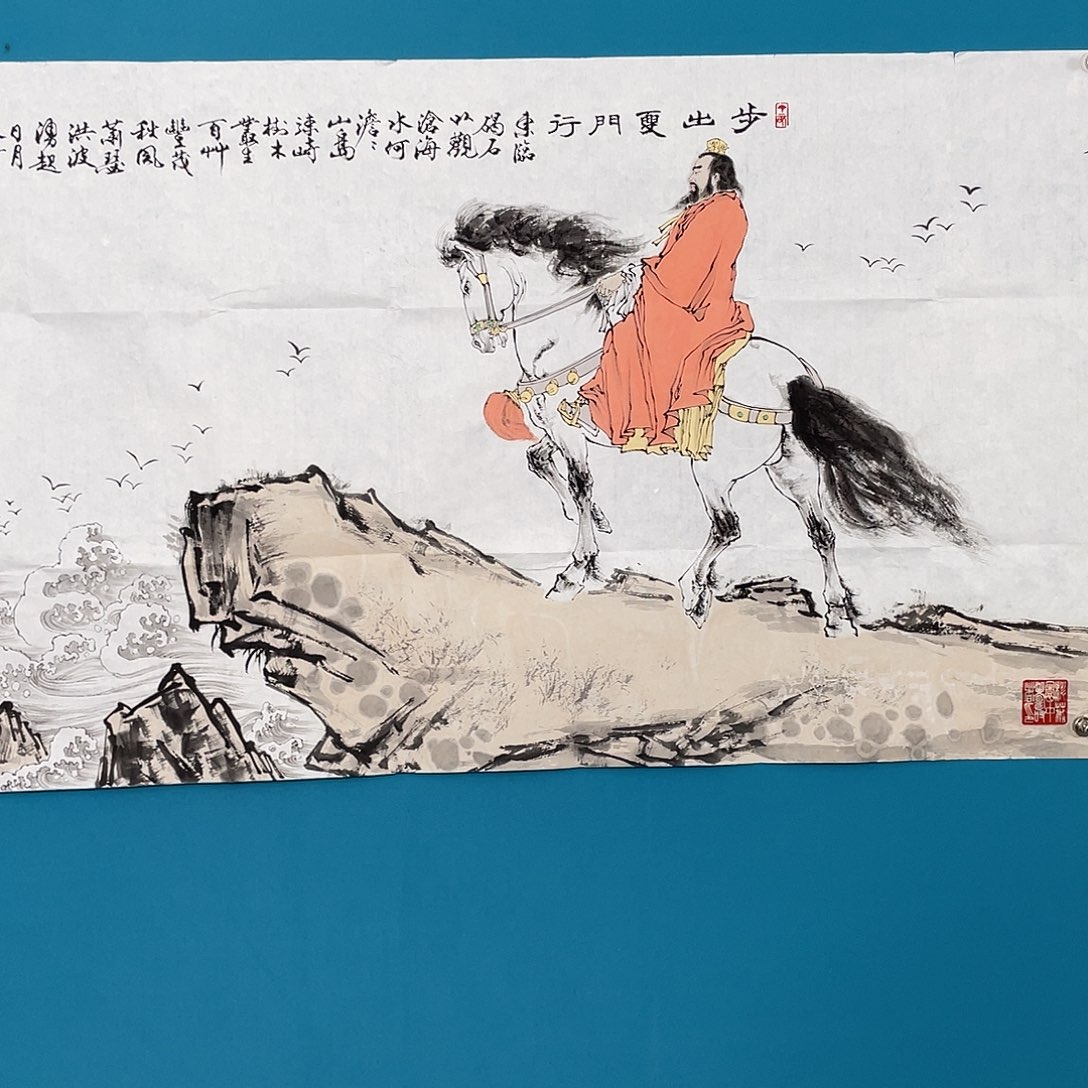 步出夏門行
東臨
碣石
以觀
滄海
水何
澹〻
山島
竦峙
樹木
叢生
百艸
豐茂
秋風
蕭瑟
洪波
湧起
日月